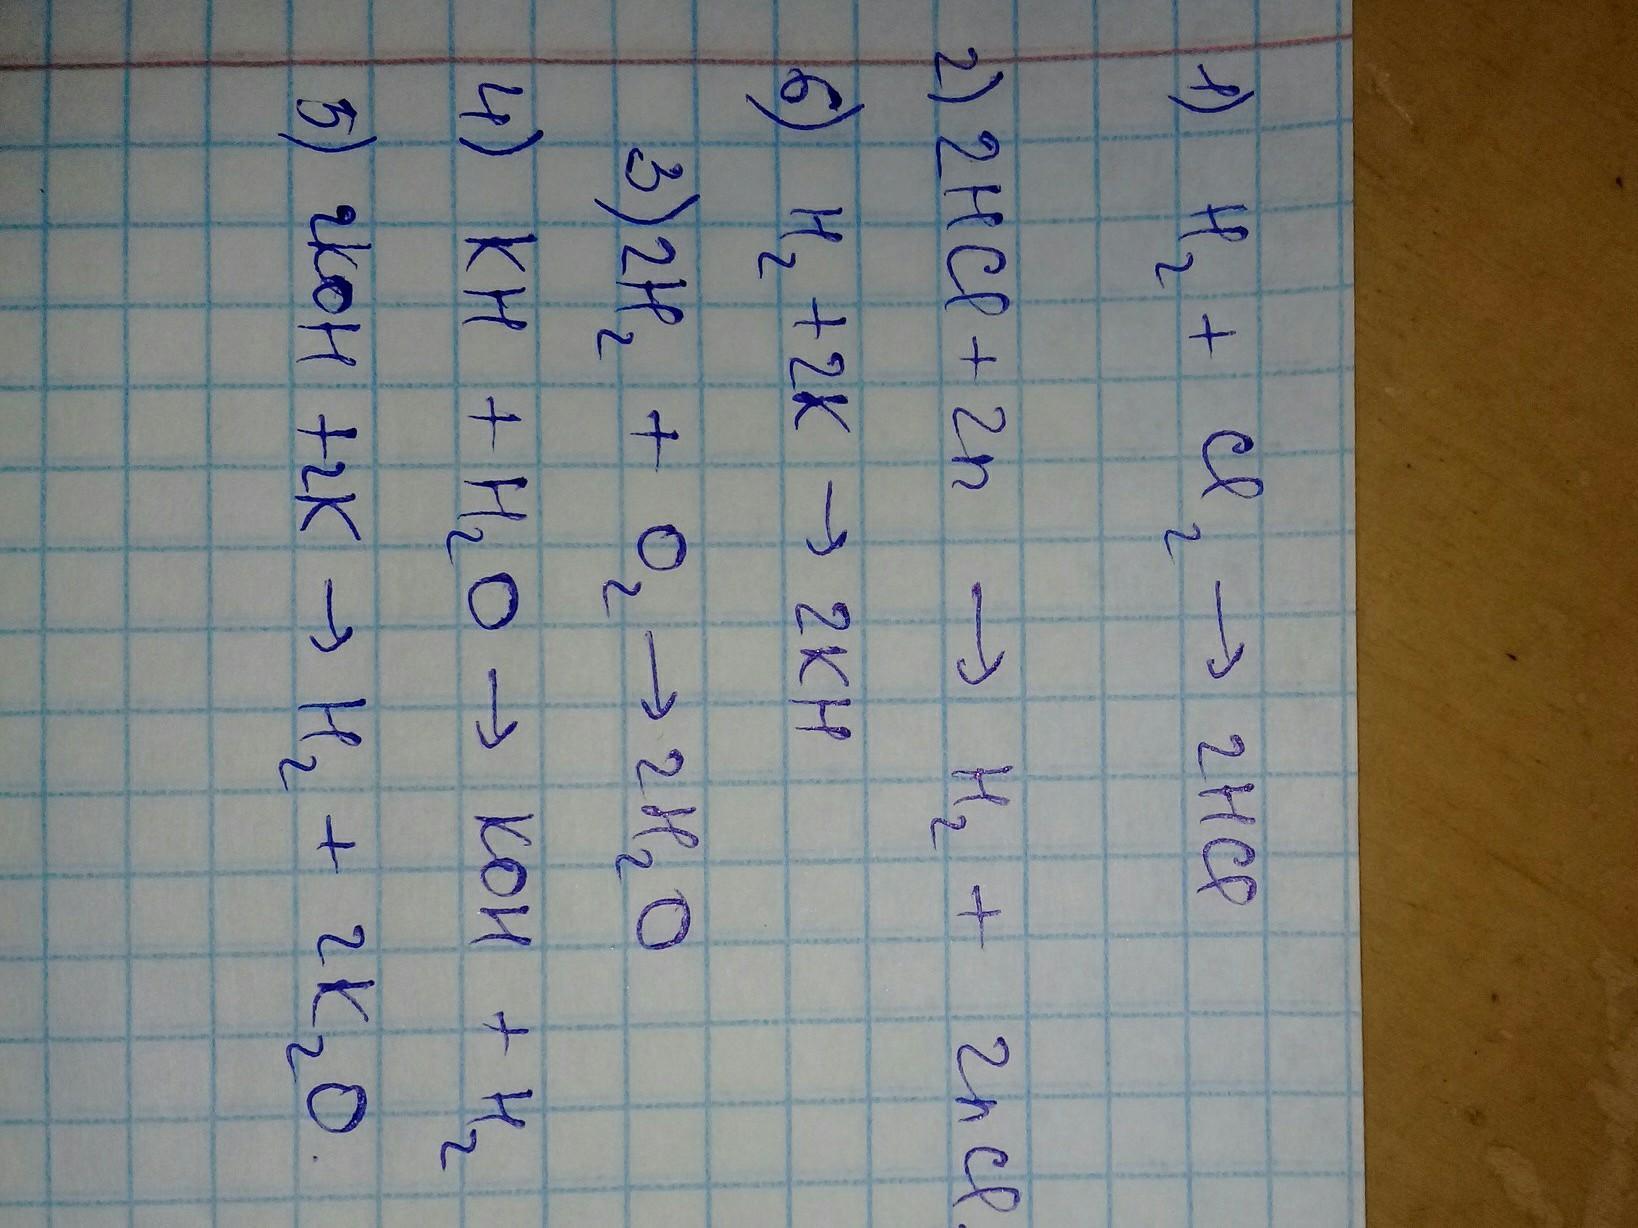 1) H₂ + Cl₂ → 2HCl
2) 2HCl + Zn → H₂ + ZnCl
6) H₂ + 2K → 2KH
3) 2H₂ + O₂ → 2H₂O
4) KH + H₂O → KOH + H₂
5) 2KOH + 2K → H₂ + 2K₂O